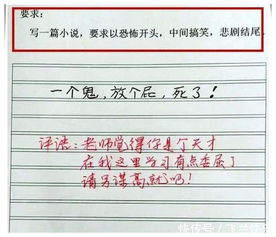 要求：
写一篇小说，要求以恐怖开头，中间搞笑，悲剧结尾。
一个鬼，放个屁，死了！
评语：老师觉得你是个天才
在我这里学习有点委屈了
请另谋高就吧！